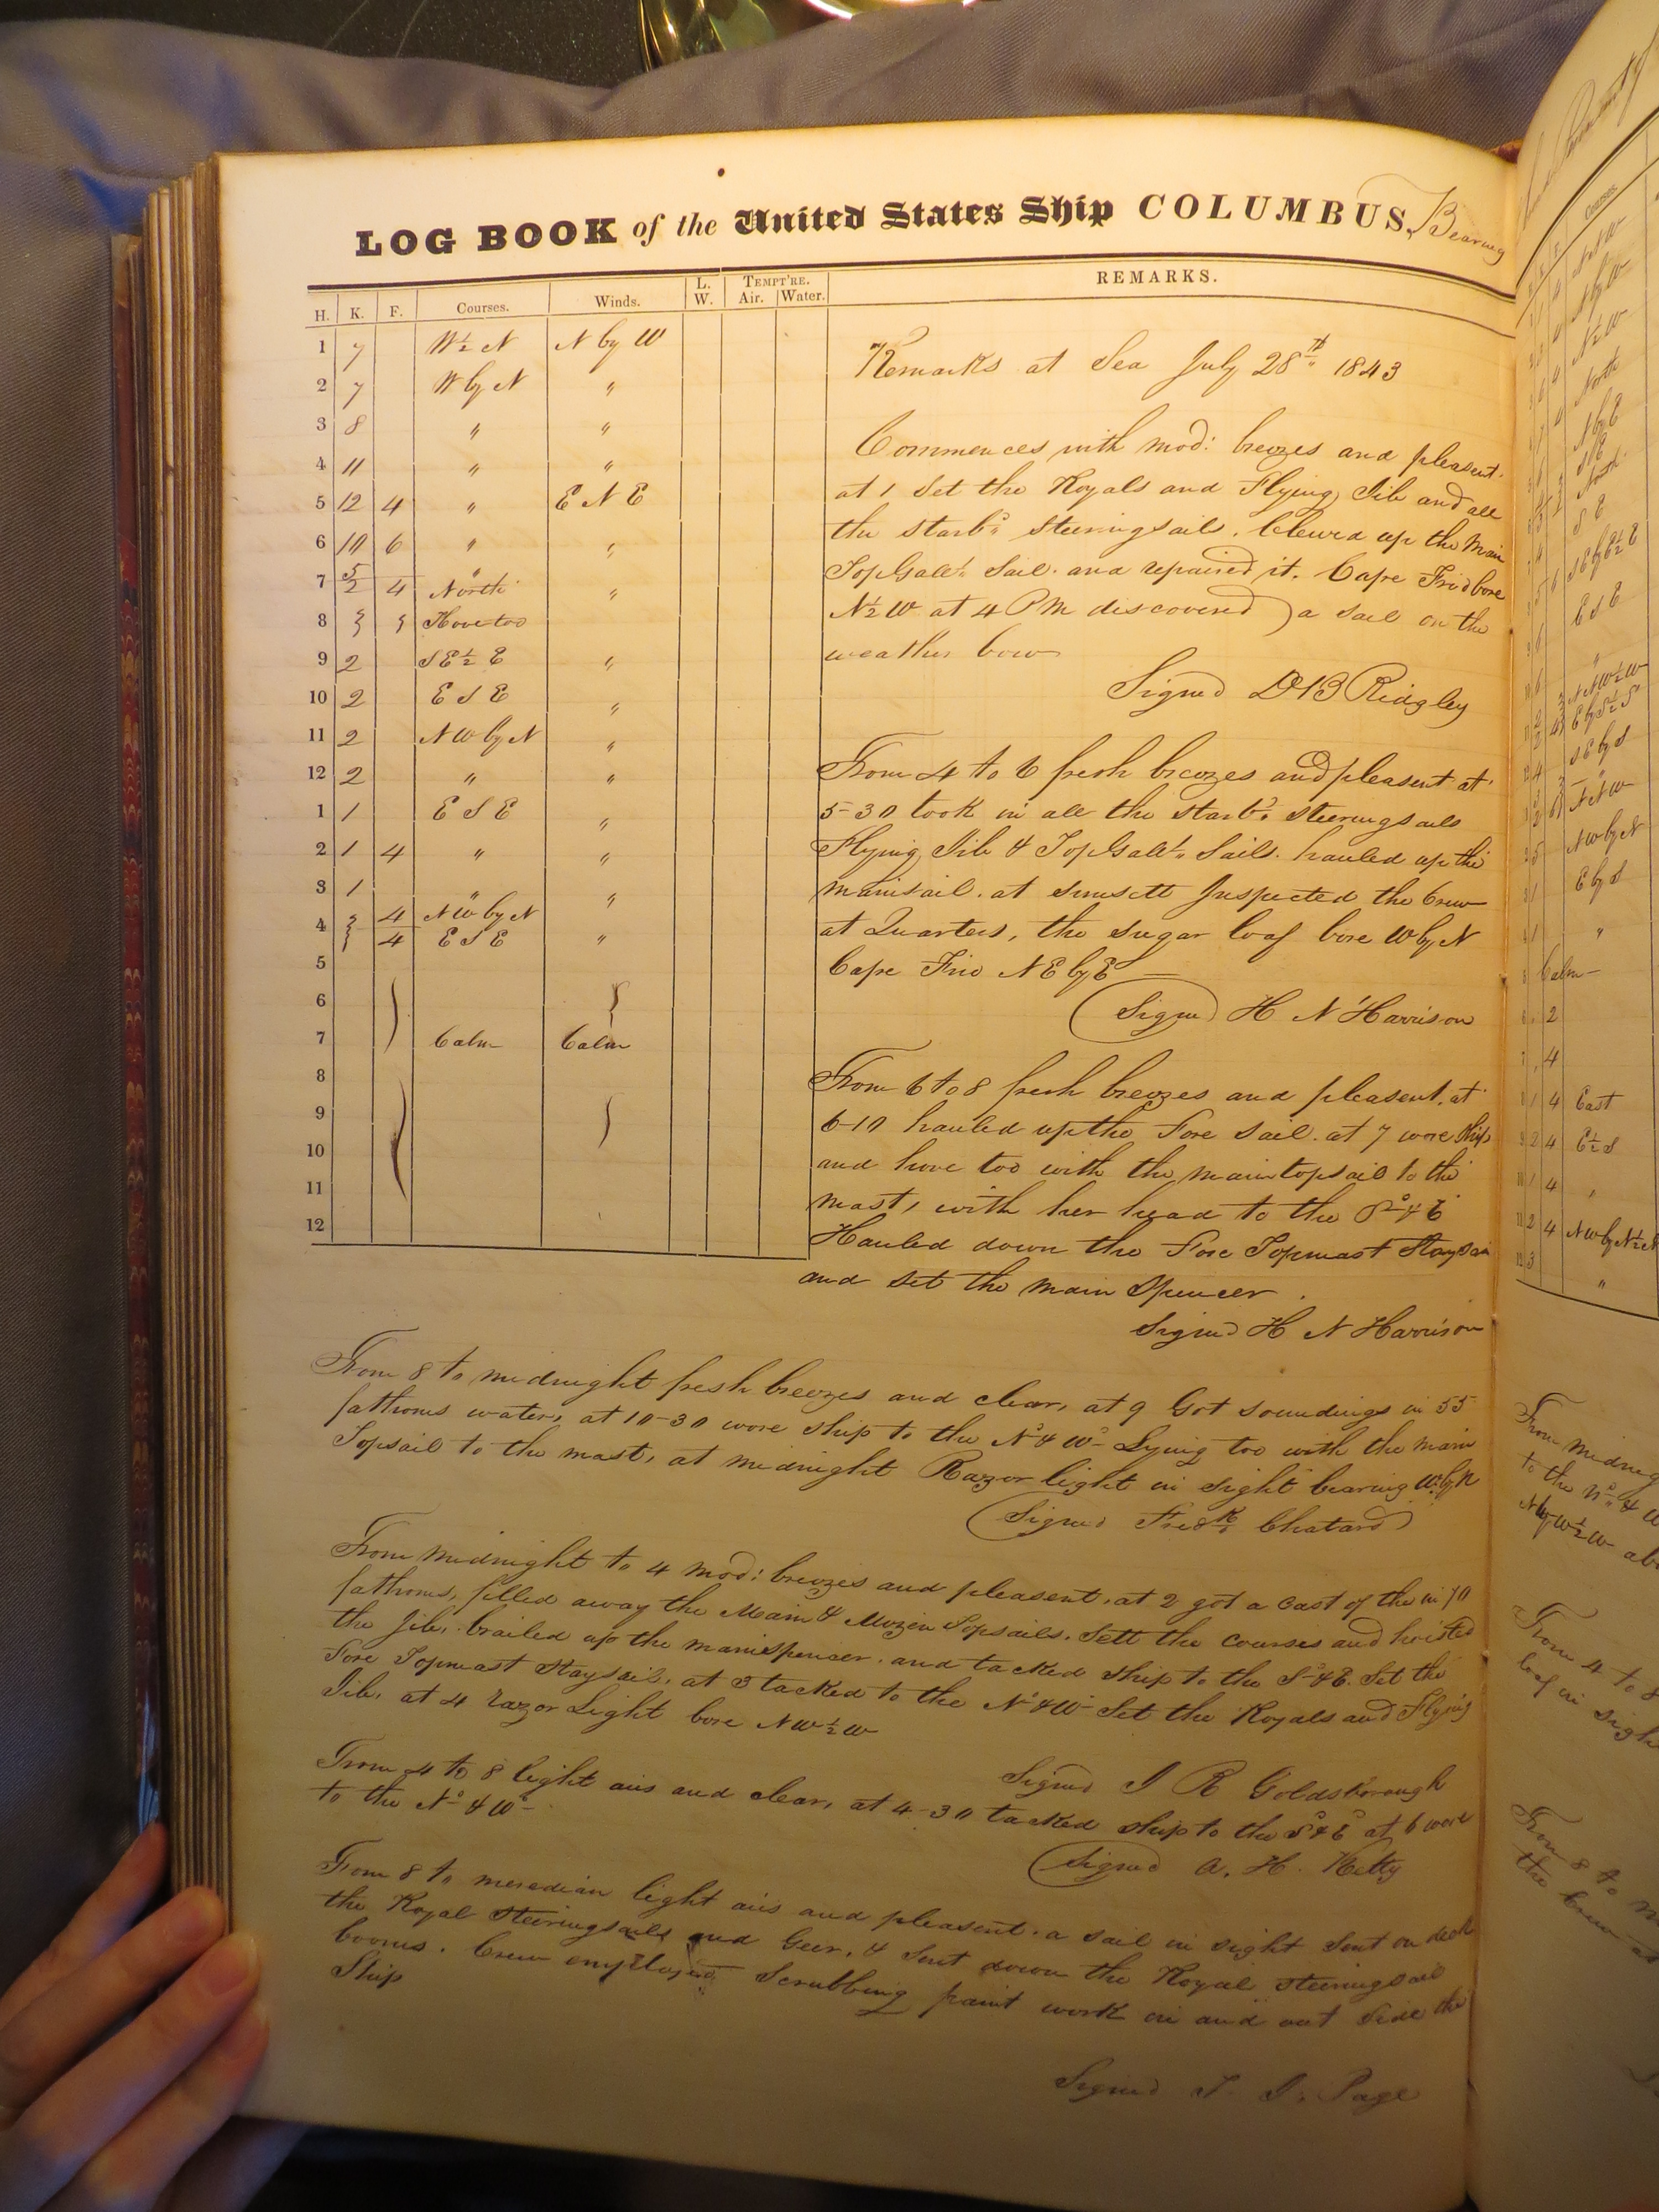 LOG BOOK of the United States Ship COLUMBUS, Bearing
H. K. F. Courses. Winds. L. W. TEMPT'RE. Air. Water. REMARKS.
1 7 W½ N N by W
2 7 W by N "
3 8 " "
4 11 " "
5 12 4 " E N E
6 10 6 " "
7 5/2 4 " North "
8 Hove too
9 2 S E ½ E "
10 2 E S E "
11 2 N W by N "
12 2 " "
1 1 E S E "
2 1 4 " "
3 1 " "
4 4 N W by N
4 E S E "
5
6
7 Calm Calm
8
9
10
11
12
Remarks at Sea July 28th 1843
Commences with mod: breezes and pleasent.
at 1 Set the Royals and Flying Jib and all
the starbd steeringsails. Clewed up the Main
TopGallt Sail. and repaired it. Cape Frio bore
N½W. at 4 PM discovered a sail on the
weather bow
Signed D B Ridgley
From 4 to 6 fresh breezes and pleasent at
5-30 took in all the Starbd steeringsails
Flying Jib & TopGallt Sails. hauled up the
mainsail. at sunsett Inspected the Crew
at Quarters, the Sugar loaf bore W by N
Cape Frio N E by E
Signed H N Harrison
From 6 to 8 fresh breezes and pleasent. at
6-10 hauled up the Fore Sail. at 7 wore Ship
and hove too with the maintopsail to the
mast, with her head to the So & E
Hauled down the Fore Topmast Staysail
and set the main Spencer.
Signed H N Harrison
From 8 to midnight fresh breezes and clear, at 9 Got Soundings in 55
fathoms water, at 10-30 wore ship to the No & Wo Lying too with the main
Topsail to the mast, at midnight Razor light in sight bearing W. by N
Signed Fredk Chatard
From Midnight to 4 mod: breezes and pleasent, at 2 got a cast of the in 70
fathoms, filled away the Main & Mizen Topsails. Sett the courses and hoisted
the Jib, brailed up the mainspencer. and tacked ship to the So & E. Set the
Fore Topmast Staysail, at 3 tacked to the No & Wo Set the Royals and Flying
Jib, at 4 Razor Light bore N W ½ W
Signed J R Goldsborough
From 4 to 8 light airs and clear, at 4-30 tacked ship to the So & E at 6 wore
to the No & Wo
Signed A. H. Kelty
From 8 to meredian light airs and pleasent. a sail in sight Sent on deck
the Royal Steeringsails and Geer, & Sent down the Royal steeringsail
booms. Crew employed Scrubbing paint work in and out Side the
Ship
Signed T. J. Page
Courses
North
E S E
Calm
East
E½S
From midnig
to the No & W
From 4 to 8
loaf in sigh
From 8 to m
the Crew at